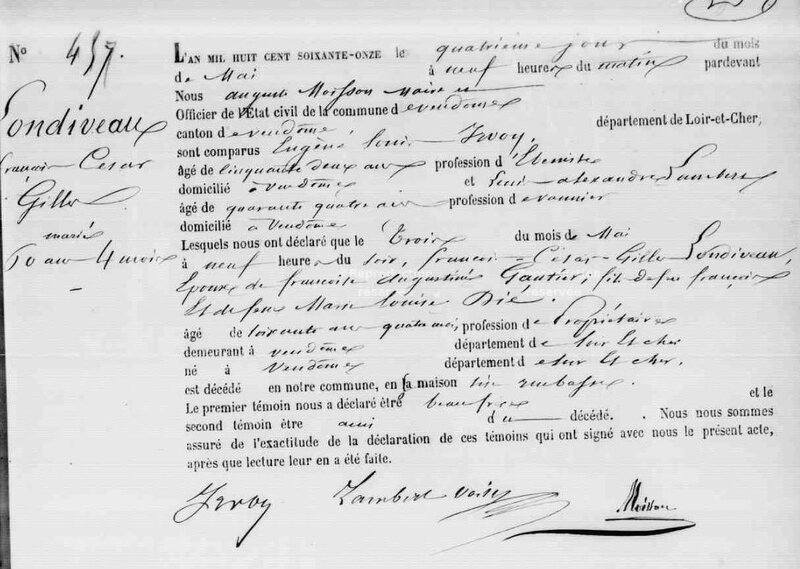 N° 457.
Londiveau
françois César
Gilles
marié
60 ans 4 mois
L'AN MIL HUIT CENT SOIXANTE-ONZE le quatrieme jour du mois
de Mai à neuf heures du matin pardevant
Nous auguste Moisson Maire et
Officier de l'Etat civil de la commune de vendome
canton de vendôme, département de Loir-et-Cher,
sont comparus Eugène Louis
âgé de cinquante deux ans profession d'Ebeniste
domicilié à vendôme et Louis alexandre Lambert
âgé de quarante quatre ans profession de vannier
domicilié à Vendôme
Lesquels nous ont déclaré que le Trois du mois de Mai
à neuf heures du soir, françois César Gilles Londiveau,
Epoux de françoise augustine Gautier, fils de feu françois
Et de feue Marie Louise Dié.
âgé de soixante ans quatre mois profession de Propriétaire
demeurant à vendôme département de Loir Et cher
né à Vendôme département de Loir Et cher.
est décédé en notre commune, en sa maison sise rue basse.
Le premier témoin nous a déclaré être beaufrère et le
second témoin être ami du décédé. Nous nous sommes
assuré de l'exactitude de la déclaration de ces témoins qui ont signé avec nous le présent acte,
après que lecture leur en a été faite.
Lambert Moisson